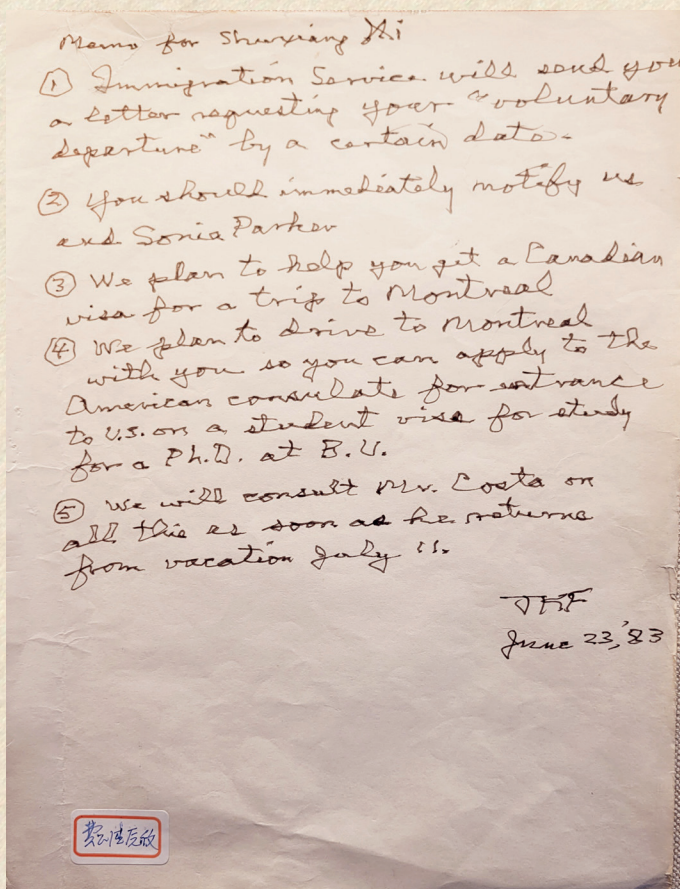 Memo for Shuxiang Xi
① Immigration Service will send you
a letter requesting your "voluntary
departure" by a certain date.
② You should immediately notify us
and Sonia Parker
③ We plan to help you get a Canadian
visa for a trip to Montreal
④ We plan to drive to Montreal
with you so you can apply to the
American consulate for entrance
to U.S. on a student visa for study
for a Ph.D. at B.U.
⑤ We will consult Mr. Costa on
all this as soon as he returns
from vacation July 11.
JKF
June 23, '83